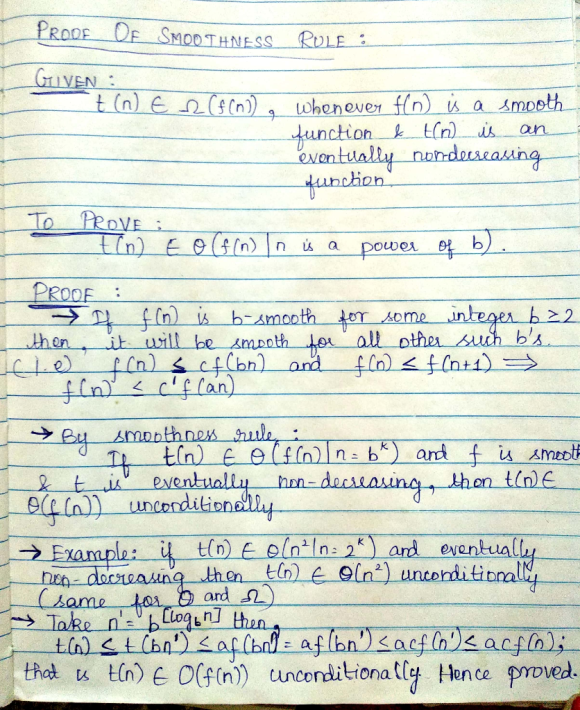 PROOF OF SMOOTHNESS RULE :
GIVEN :
t(n) ∈ Ω(f(n)), whenever f(n) is a smooth
function & t(n) is an
eventually nondecreasing
function.
TO PROVE :
t(n) ∈ Θ(f(n) | n is a power of b).
PROOF :
→ If f(n) is b-smooth for some integer b ≥ 2
then, it will be smooth for all other such b's.
(i.e) f(n) ≤ cf(bn) and f(n) ≤ f(n+1) ⟹
f(n) ≤ c'f(an)
→ By smoothness rule, :
If t(n) ∈ Θ(f(n) | n = b^k) and f is smooth
& t is eventually non-decreasing, then t(n) ∈
Θ(f(n)) unconditionally.
→ Example: if t(n) ∈ Θ(n² | n = 2^k) and eventually
non-decreasing then t(n) ∈ Θ(n²) unconditionally
(same for O and Ω)
→ Take n' = b^⌊log_b n⌋ then,
t(n) ≤ t(bn') ≤ af(bn') = af(bn') ≤ acf(n') ≤ acf(n);
that is t(n) ∈ O(f(n)) unconditionally. Hence proved.